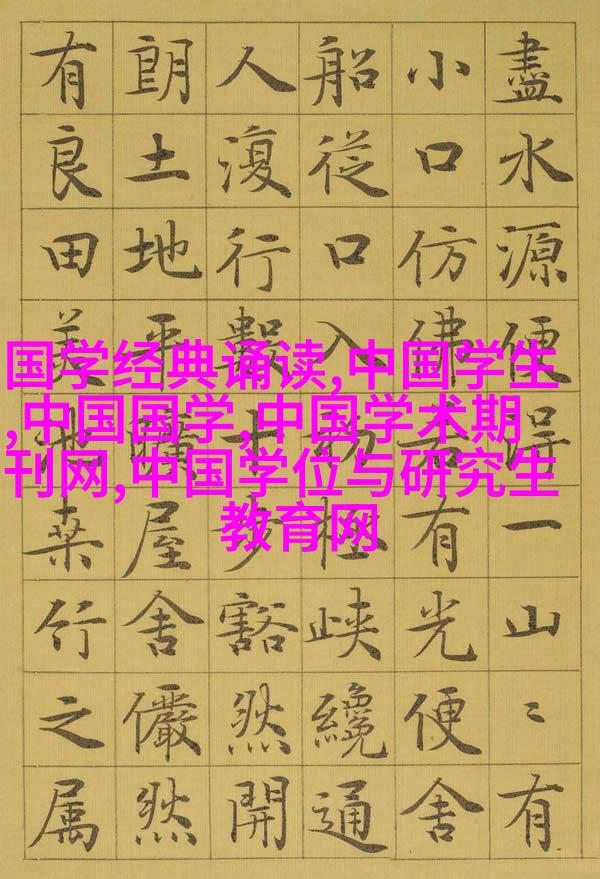 盡水源便得一山〻有
小口仿佛若有光便舍
船從口入初極峽纔通
人復行數十步豁然開
朗土地平曠屋舍儼然
有良田美池桑竹之属
国学经典诵读,中国学生
,中国国学,中国学术期
刊网,中国学位与研究生
教育网